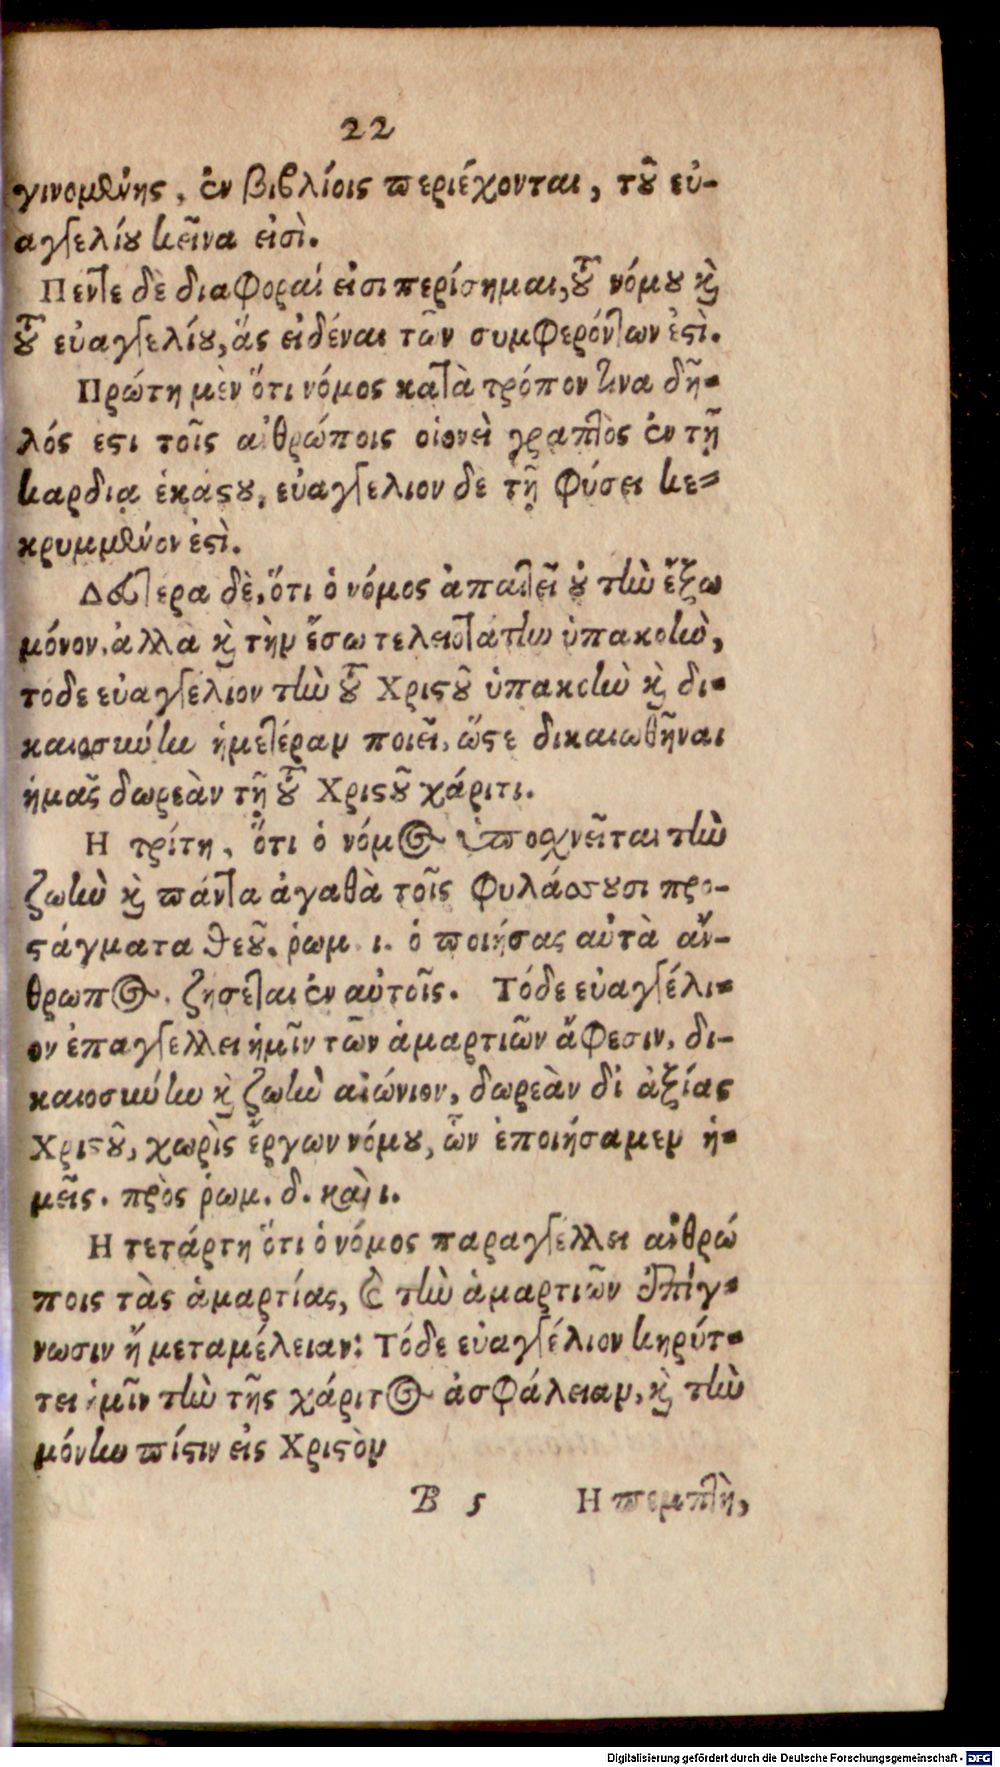 22
γινομένης, ἐν βιβλίοις περιέχονται, τοῦ εὐ-
αγγελίου κεῖνα εἰσὶ.
Πέντε δὲ διαφοραί εἰσι περίσημαι, τοῦ νόμου καὶ
τοῦ εὐαγγελίου, ἅς εἰδέναι τῶν συμφερόντων ἐστὶ.
Πρώτη μὲν ὅτι νόμος κατὰ τρόπον τινα δῆ-
λός εστι τοῖς ανθρώποις οἱονεὶ γραπτὸς ἐν τῇ
καρδιᾳ ἑκάστου, εὐαγγελιον δε τῇ φύσει κε-
κρυμμένον ἐστὶ.
Δευτερα δὲ, ὅτι ὁ νόμος ἀπαιτεῖ οὐ τὴν ἔξω
μόνον, ἀλλὰ καὶ τὴν ἔσω τελειοτάτην ὑπακοὴν,
τόδε εὐαγγέλιον τὴν τοῦ Χριστοῦ ὑπακοὴν καὶ δι-
καιοσύνην ἡμετέραν ποιεῖ, ὥστε δικαιωθῆναι
ἡμᾶς δωρεὰν τῇ τοῦ Χριστοῦ χάριτι.
Η τρίτη, ὅτι ὁ νόμος ὑποχνεῖται τὴν
ζωὴν καὶ πάντα ἀγαθὰ τοῖς φυλάσσουσι προ-
στάγματα θεοῦ. ῥωμ. ι. ὁ ποιήσας αὐτὰ ἄν-
θρωπος, ζησεται ἐν αὐτοῖς. Τόδε εὐαγγέλι-
ον ἐπαγγελλει ἡμῖν τῶν ἁμαρτιῶν ἄφεσιν, δι-
καιοσύνην καὶ ζωὴν αἰώνιον, δωρεὰν δἰ ἀξίας
Χριστοῦ, χωρὶς ἔργων νόμου, ὧν ἐποιήσαμεν ἡ-
μεῖς. πρὸς ῥωμ. δ. καὶ ι.
Η τετάρτη ὅτι ὁ νόμος παραγγέλλει ανθρώ
ποις τὰς ἁμαρτίας, καὶ τὴν ἁμαρτιῶν ἐπίγ-
νωσιν ἤ μεταμέλειαν: Τόδε εὐαγγέλιον κηρύτ-
τει ἡμῖν τὴν τῆς χάριτος ἀσφάλειαν, καὶ τὴν
μόνην πίστιν εἰς Χριστὸν
B 5 Η πεμπτὴ,
Digitalisierung gefördert durch die Deutsche Forschungsgemeinschaft - DFG